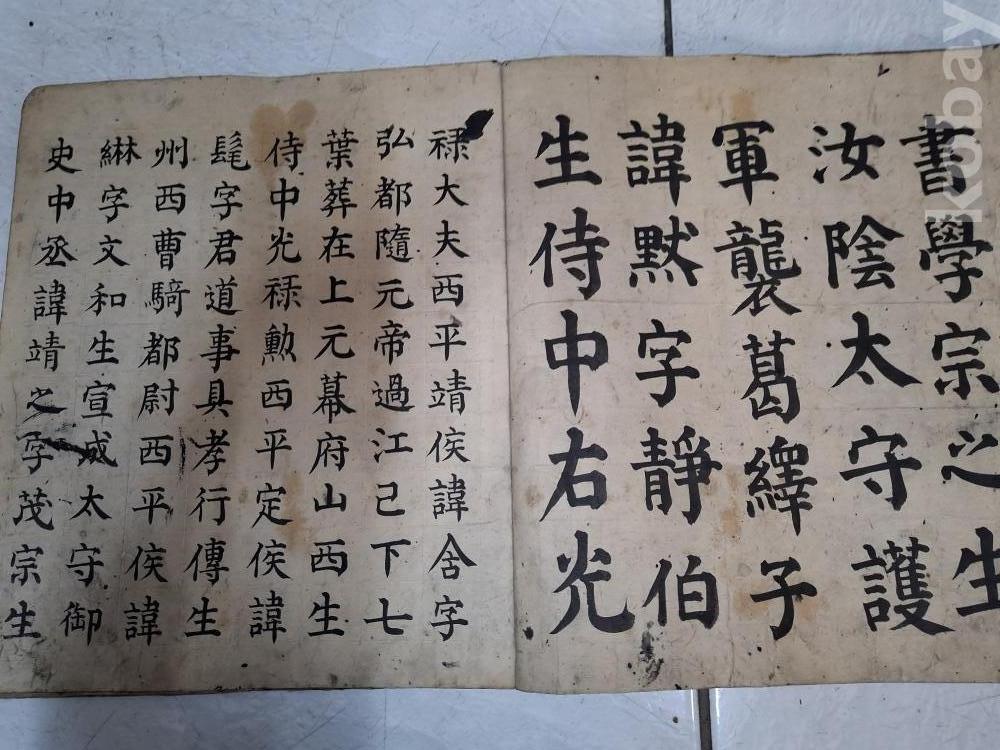 書學宗之生
汝陰太守護
軍襲葛繹子
諱默字靜伯
生侍中右光
禄大夫西平靖侯諱含字
弘都隨元帝過江已下七
葉葬在上元幕府山西生
侍中光禄勲西平定侯諱
髦字君道事具孝行傳生
州西曹騎都尉西平侯諱
綝字文和生宣成太守御
史中丞諱靖之字茂宗生
kobay